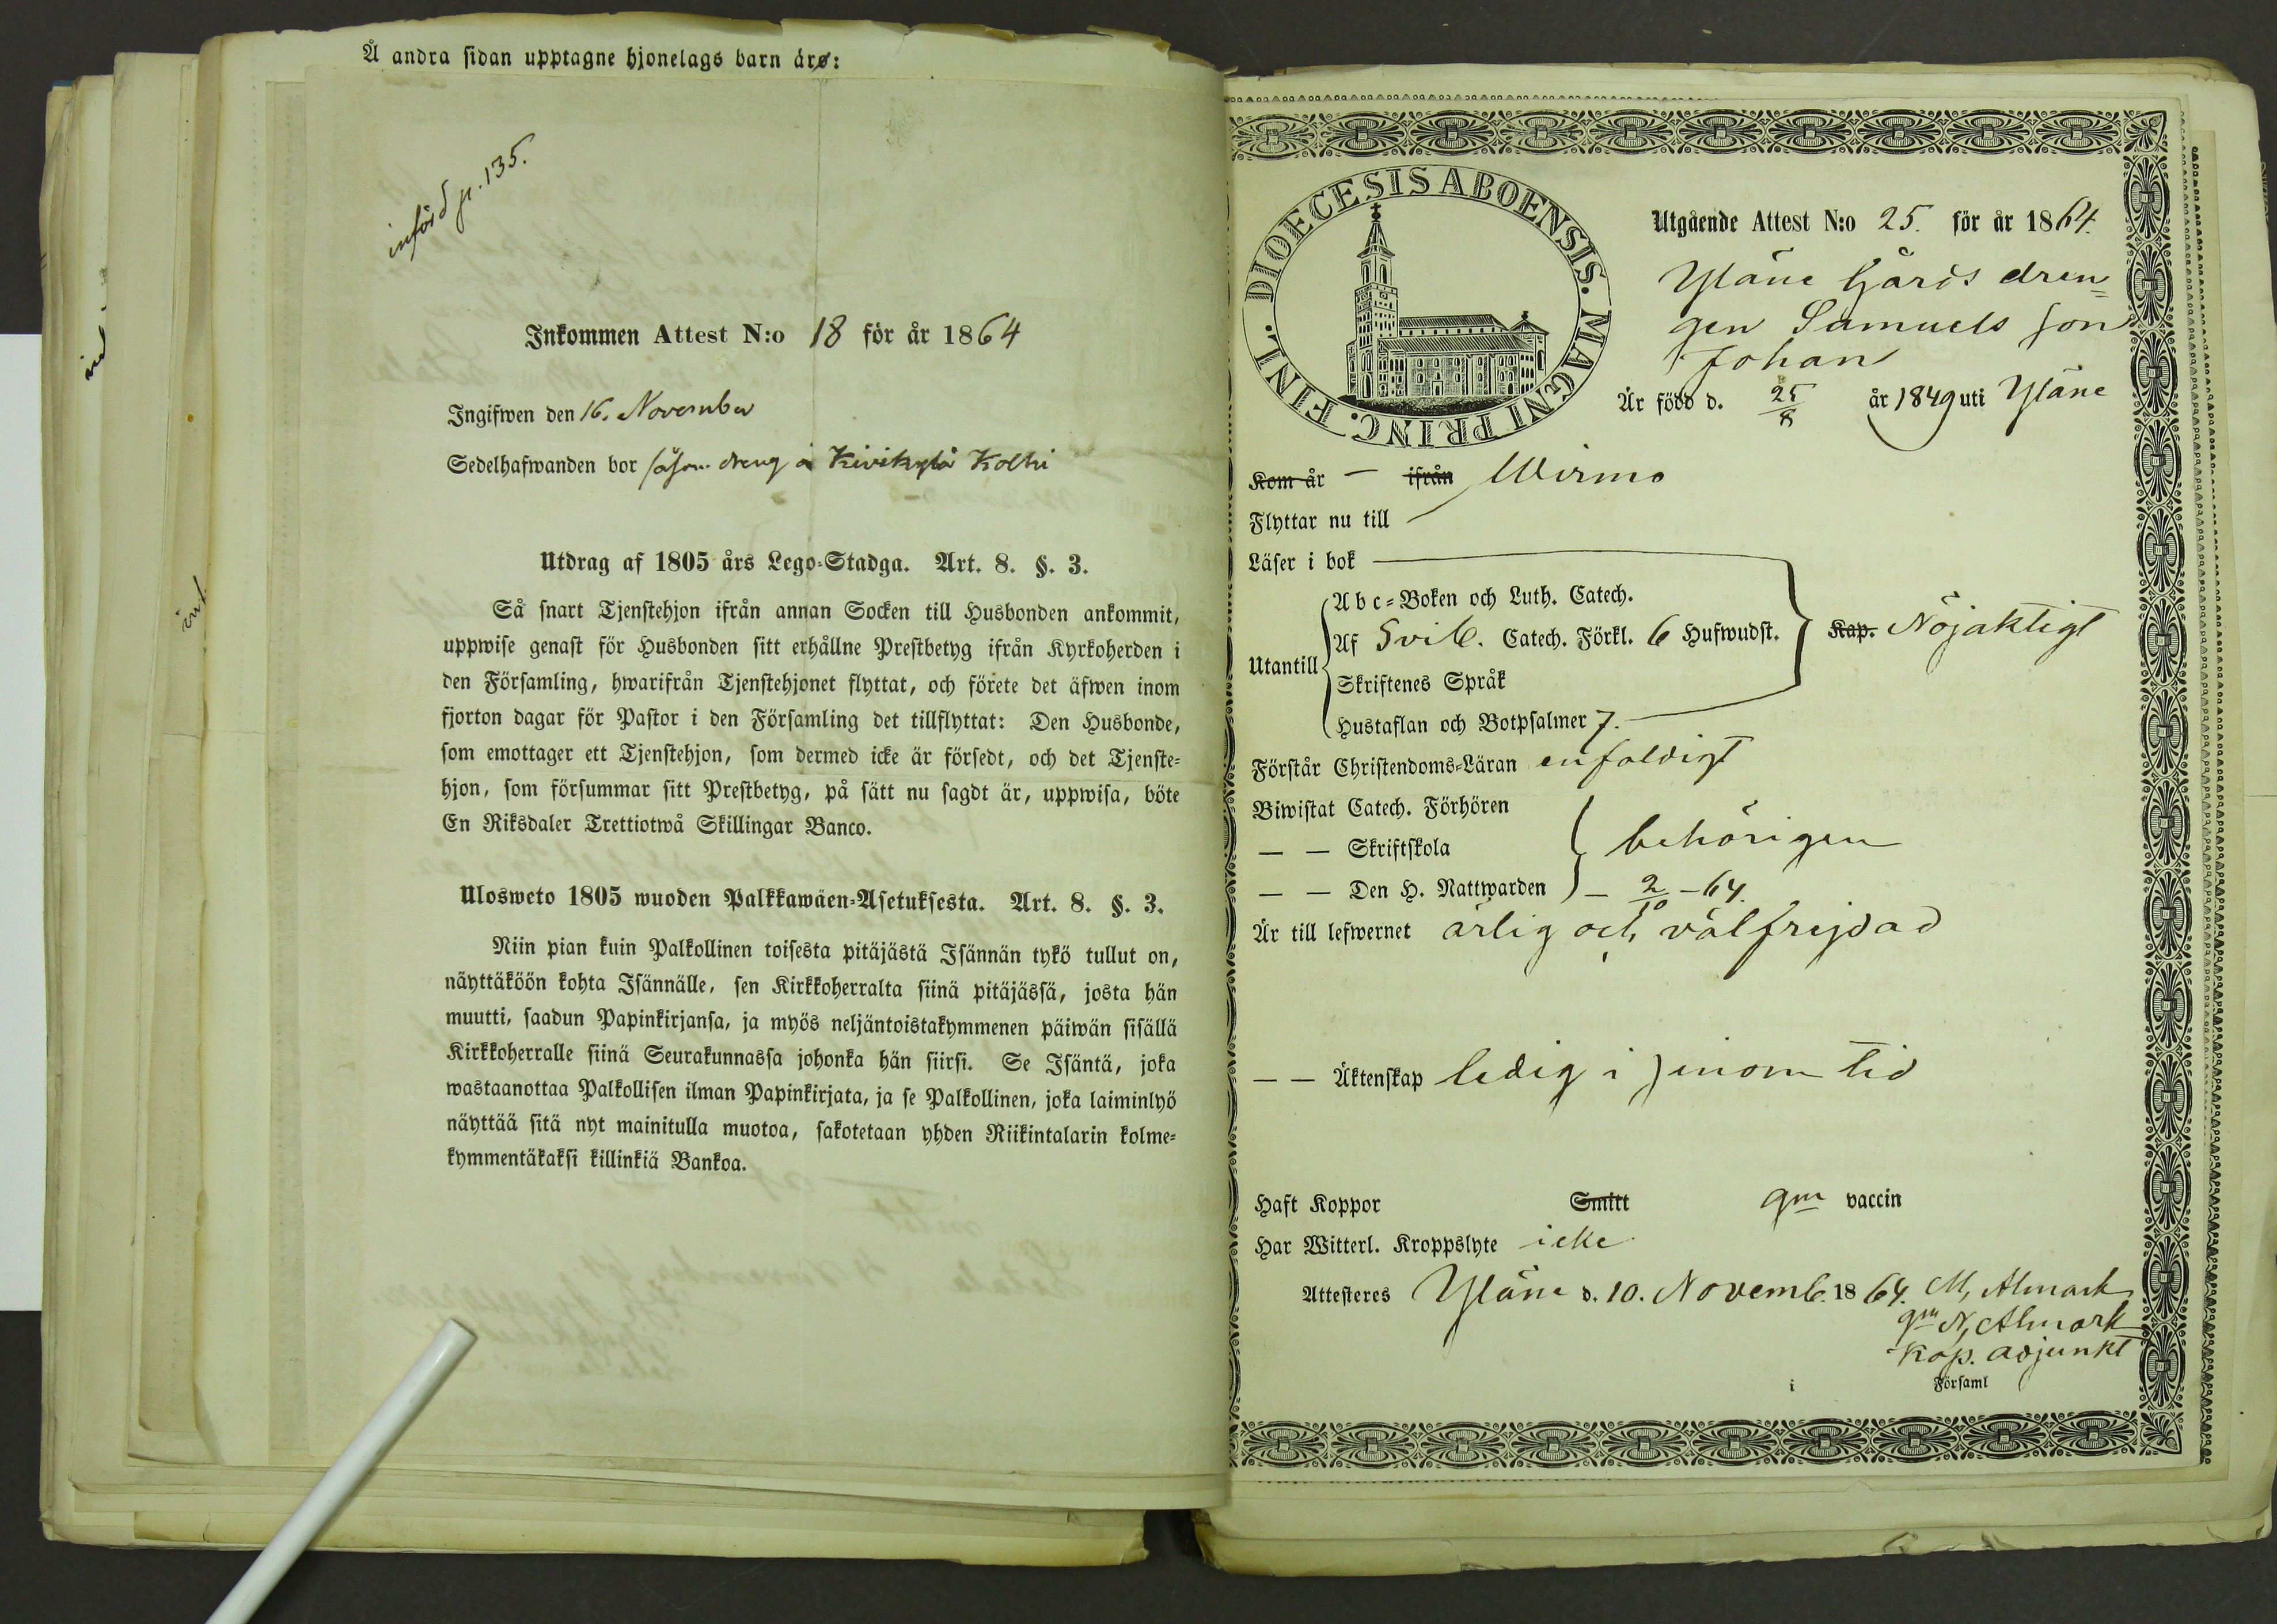 Å andra sidan upptagne hjonelags barn äro:
införd p. 135.
Inkommen Attest N:o 18 för år 1864
Ingifwen den 16. November
Sedelhafwanden bor såsom dreng å Kivikylä Kolhi
Utdrag af 1805 års Lego-Stadga. Art. 8. §. 3.
Så snart Tjenstehjon ifrån annan Socken till Husbonden ankommit,
uppwise genast för Husbonden sitt erhållne Prestbetyg ifrån Kyrkoherden i
den Församling, hwarifrån Tjenstehjonet flyttat, och förete det äfwen inom
fjorton dagar för Pastor i den Församling det tillflyttat: Den Husbonde,
som emottager ett Tjenstehjon, som dermed icke är försedt, och det Tjenste-
hjon, som försummar sitt Prestbetyg, på sätt nu sagdt är, uppwisa, böte
En Riksdaler Trettiotwå Skillingar Banco.
Ulosweto 1805 wuoden Palkkawäen-Asetuksesta. Art. 8. §. 3.
Niin pian kuin Palkollinen toisesta pitäjästä Isännän tykö tullut on,
näyttäköön kohta Isännälle, sen Kirkkoherralta siinä pitäjässä, josta hän
muutti, saadun Papinkirjansa, ja myös neljäntoistakymmenen päiwän sisällä
Kirkkoherralle siinä Seurakunnassa johonka hän siirsi. Se Isäntä, joka
wastaanottaa Palkollisen ilman Papinkirjata, ja se Palkollinen, joka laiminlyö
näyttää sitä nyt mainitulla muotoa, sakotetaan yhden Riikintalarin kolme-
kymmentäkaksi killinkiä Bankoa.
DIOECESIS ABOENSIS. MAGNI PRINC. FINL.
Utgående Attest N:o 25. för år 1864.
Yläne Gårds dren-
gen Samuels son
Johan
Är född d. 25/8 år 1849 uti Yläne
Kom år – ifrån Wirmo
Flyttar nu till
Läser i bok
Abc-Boken och Luth. Catech.
Utantill Af Svib. Catech. Förkl. 6 Hufwudst. Kap. Nöjaktigt
Skriftenes Språk
Hustaflan och Botpsalmer 7.
Förstår Christendoms-Läran enfaldigt
Biwistat Catech. Förhören
— — Skriftskola behörigen
— — Den H. Nattwarden – 2/10 – 64.
Är till lefwernet ärlig och välfrejdad
— — Äktenskap ledig i sinom tid
Haft Koppor Smitt gm vaccin
Har Witterl. Kroppslyte icke
Attesteres Yläne d. 10. Novemb. 1864. M, Almark
gm N, Almark
Kap. adjunkt
i Församl